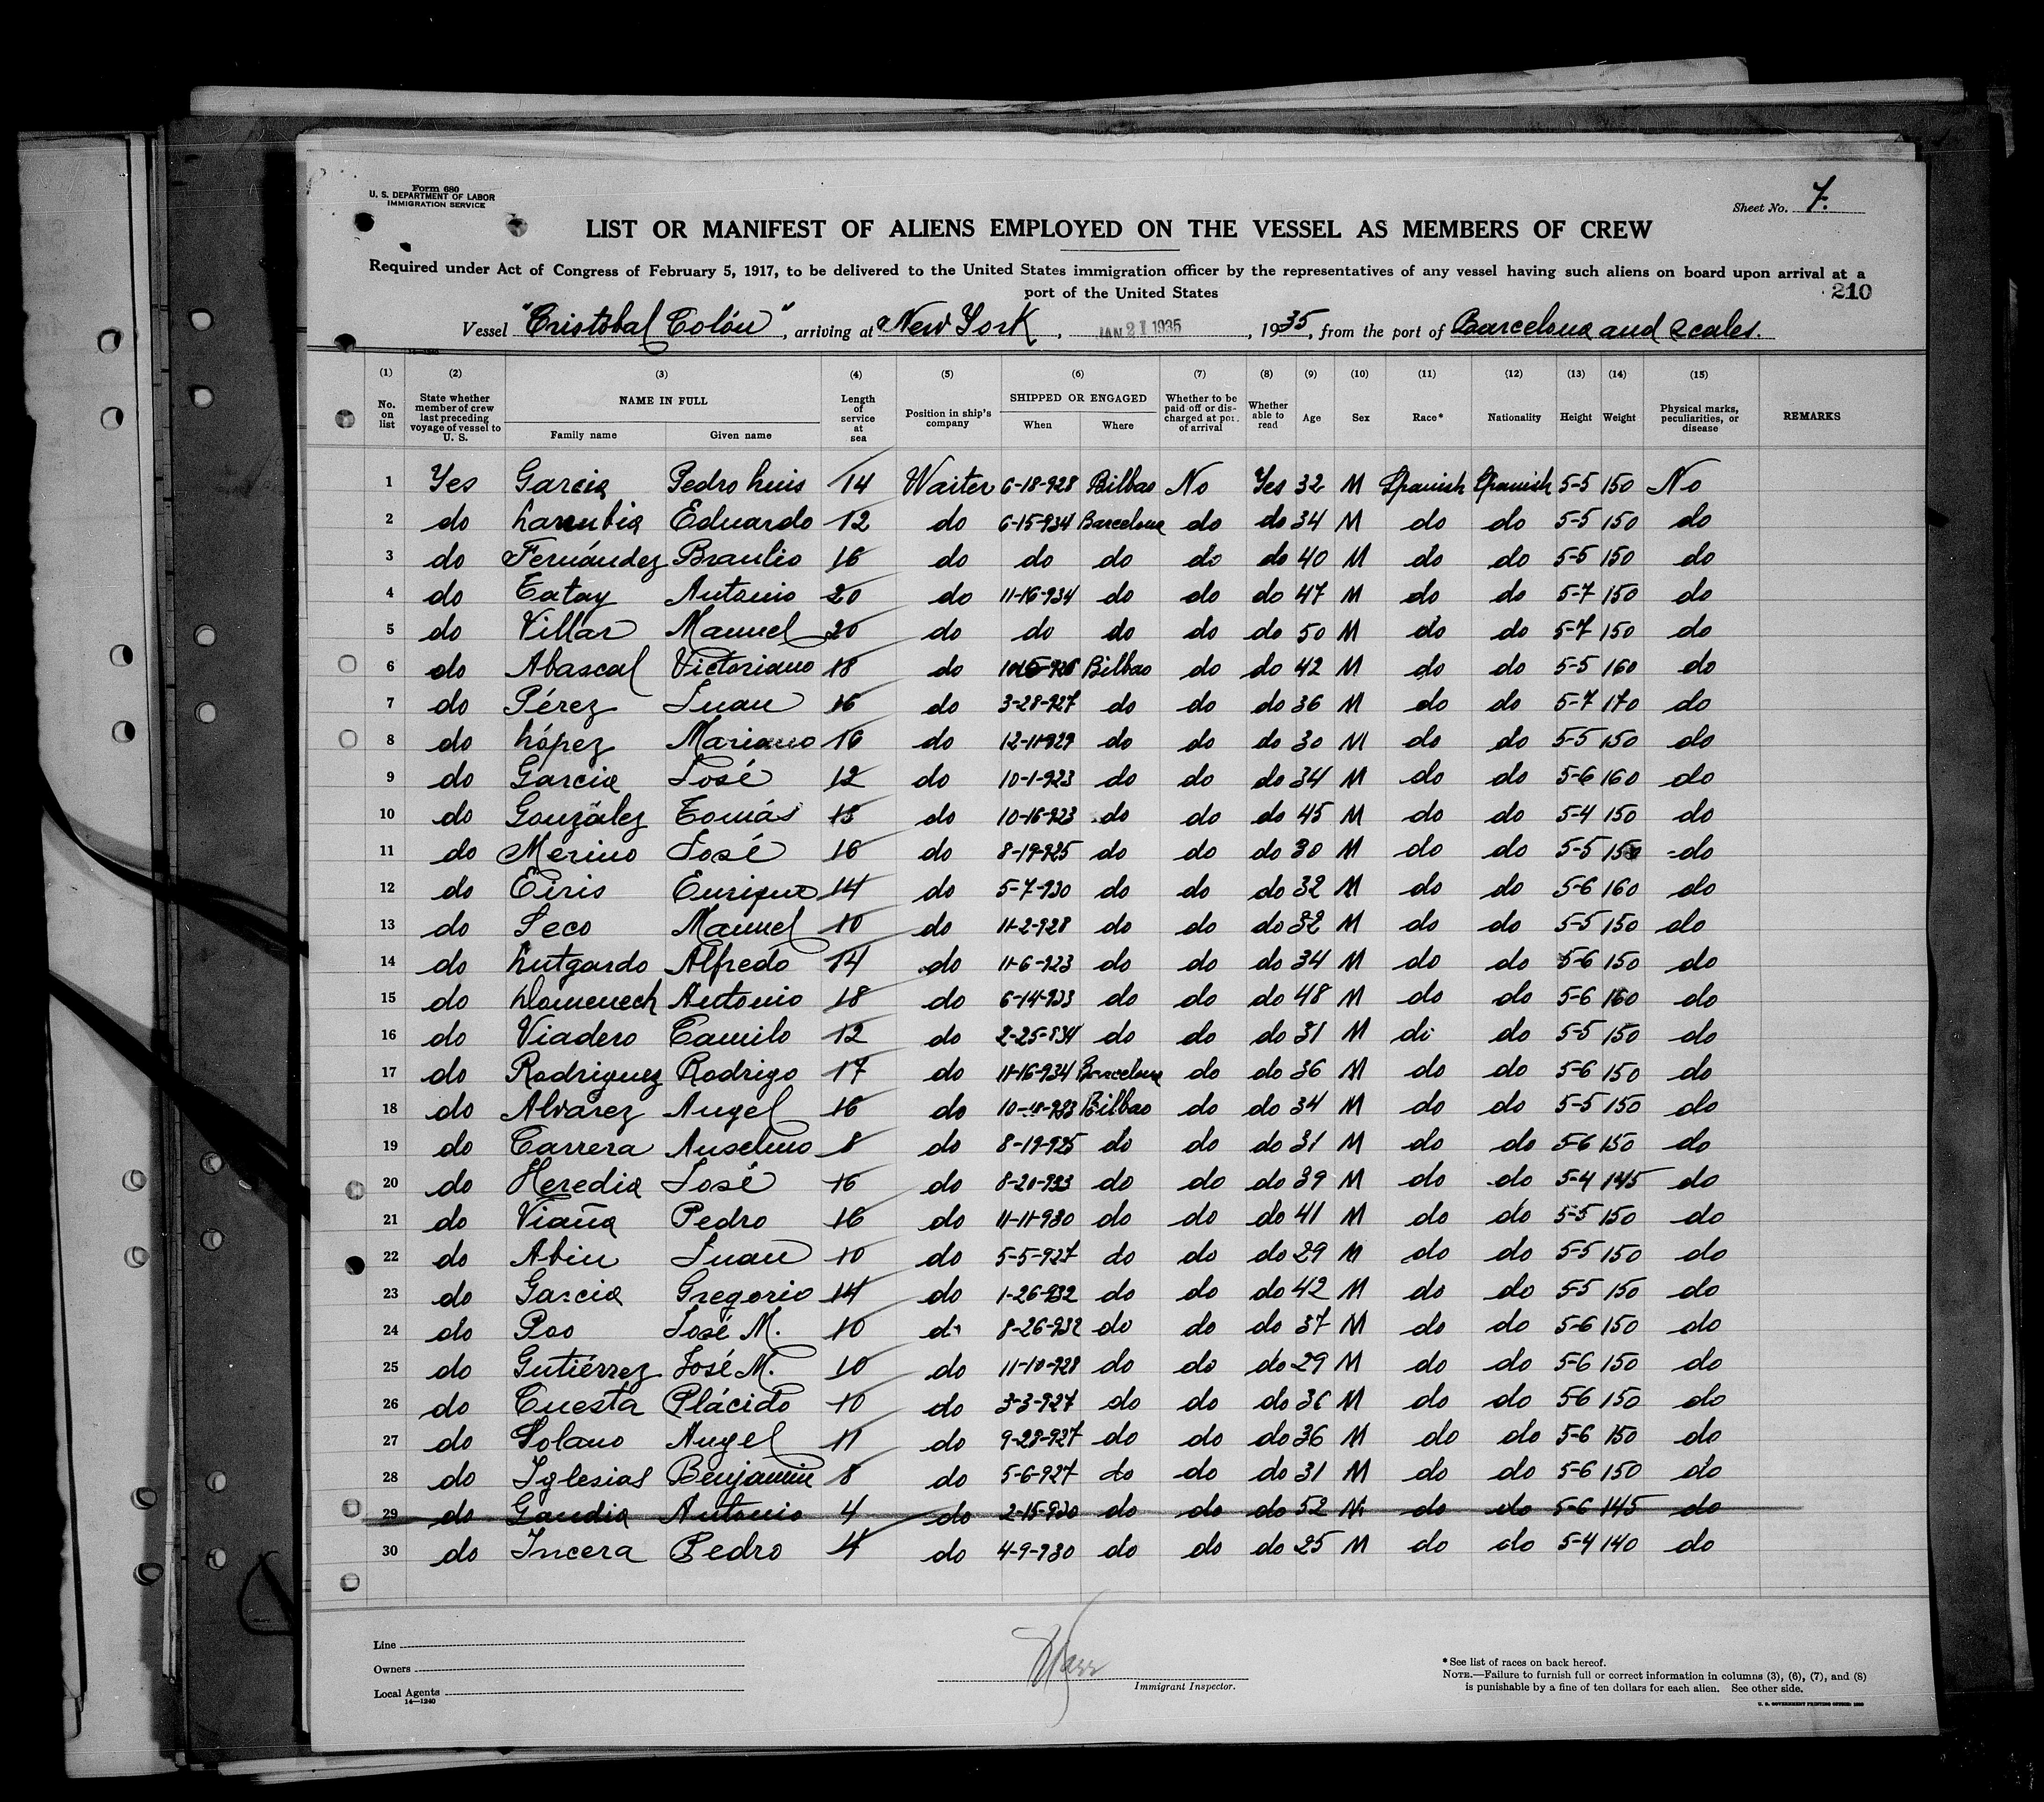 Form 680
U. S. DEPARTMENT OF LABOR
IMMIGRATION SERVICE
Sheet No. 7.
LIST OR MANIFEST OF ALIENS EMPLOYED ON THE VESSEL AS MEMBERS OF CREW
Required under Act of Congress of February 5, 1917, to be delivered to the United States immigration officer by the representatives of any vessel having such aliens on board upon arrival at a
port of the United States
210
Vessel "Cristobal Colón", arriving at New York, JAN 21 1935, 1935, from the port of Barcelona and scales.
(1) (2) (3) (4) (5) (6) (7) (8) (9) (10) (11) (12) (13) (14) (15)
No. on list State whether member of crew last preceding voyage of vessel to U. S. NAME IN FULL Family name Given name Length of service at sea Position in ship's company SHIPPED OR ENGAGED When Where Whether to be paid off or discharged at port of arrival Whether able to read Age Sex Race* Nationality Height Weight Physical marks, peculiarities, or disease REMARKS
1 Yes Garcia Pedro Luis 14 Waiter 6-18-928 Bilbao No Yes 32 M Spanish Spanish 5-5 150 No
2 do Larrubia Eduardo 12 do 6-15-934 Barcelona do do 34 M do do 5-5 150 do
3 do Fernández Braulio 16 do do do do do 40 M do do 5-5 150 do
4 do Tatay Antonio 20 do 11-16-934 do do do 47 M do do 5-7 150 do
5 do Villar Manuel 20 do do do do do 50 M do do 5-7 150 do
6 do Abascal Victoriano 18 do Bilbao do do 42 M do do 5-5 160 do
7 do Pérez Juan 16 do 3-28-927 do do do 36 M do do 5-7 170 do
8 do López Mariano 16 do 12-11-929 do do do 30 M do do 5-5 150 do
9 do Garcia José 12 do 10-1-923 do do do 34 M do do 5-6 160 do
10 do González Tomás 15 do 10-16-923 do do do 45 M do do 5-4 150 do
11 do Merino José 16 do 8-19-925 do do do 30 M do do 5-5 150 do
12 do Eiris Enrique 14 do 5-7-930 do do do 32 M do do 5-6 160 do
13 do Seco Manuel 10 do 11-2-928 do do do 32 M do do 5-5 150 do
14 do Lutgardo Alfredo 14 do 11-6-923 do do do 34 M do do 5-6 150 do
15 do Domenech Antonio 18 do 6-14-933 do do do 48 M do do 5-6 160 do
16 do Viadero Camilo 12 do 2-25-934 do do do 31 M do do 5-5 150 do
17 do Rodriguez Rodrigo 17 do 11-16-934 Barcelona do do 36 M do do 5-6 150 do
18 do Alvarez Angel 16 do Bilbao do do 34 M do do 5-5 150 do
19 do Carrera Anselmo 8 do 8-19-925 do do do 31 M do do 5-6 150 do
20 do Heredia José 16 do 8-20-933 do do do 39 M do do 5-4 145 do
21 do Viaña Pedro 16 do 11-11-930 do do do 41 M do do 5-5 150 do
22 do Abin Juan 10 do 5-5-927 do do do 29 M do do 5-5 150 do
23 do Garcia Gregorio 14 do 1-26-932 do do do 42 M do do 5-5 150 do
24 do Poo José M. 10 do 8-26-932 do do do 37 M do do 5-6 150 do
25 do Gutiérrez José M. 10 do 11-10-928 do do do 29 M do do 5-6 150 do
26 do Cuesta Plácido 10 do 3-3-927 do do do 36 M do do 5-6 150 do
27 do Solano Angel 11 do 9-28-927 do do do 36 M do do 5-6 150 do
28 do Iglesias Benjamin 8 do 5-6-927 do do do 31 M do do 5-6 150 do
29 do Gandia Antonio 4 do 2-15-930 do do do 52 M do do 5-6 145 do
30 do Incera Pedro 4 do 4-9-930 do do do 25 M do do 5-4 140 do
Line
Owners
Local Agents
14—1240
Immigrant Inspector.
*See list of races on back hereof.
NOTE.—Failure to furnish full or correct information in columns (3), (6), (7), and (8)
is punishable by a fine of ten dollars for each alien. See other side.